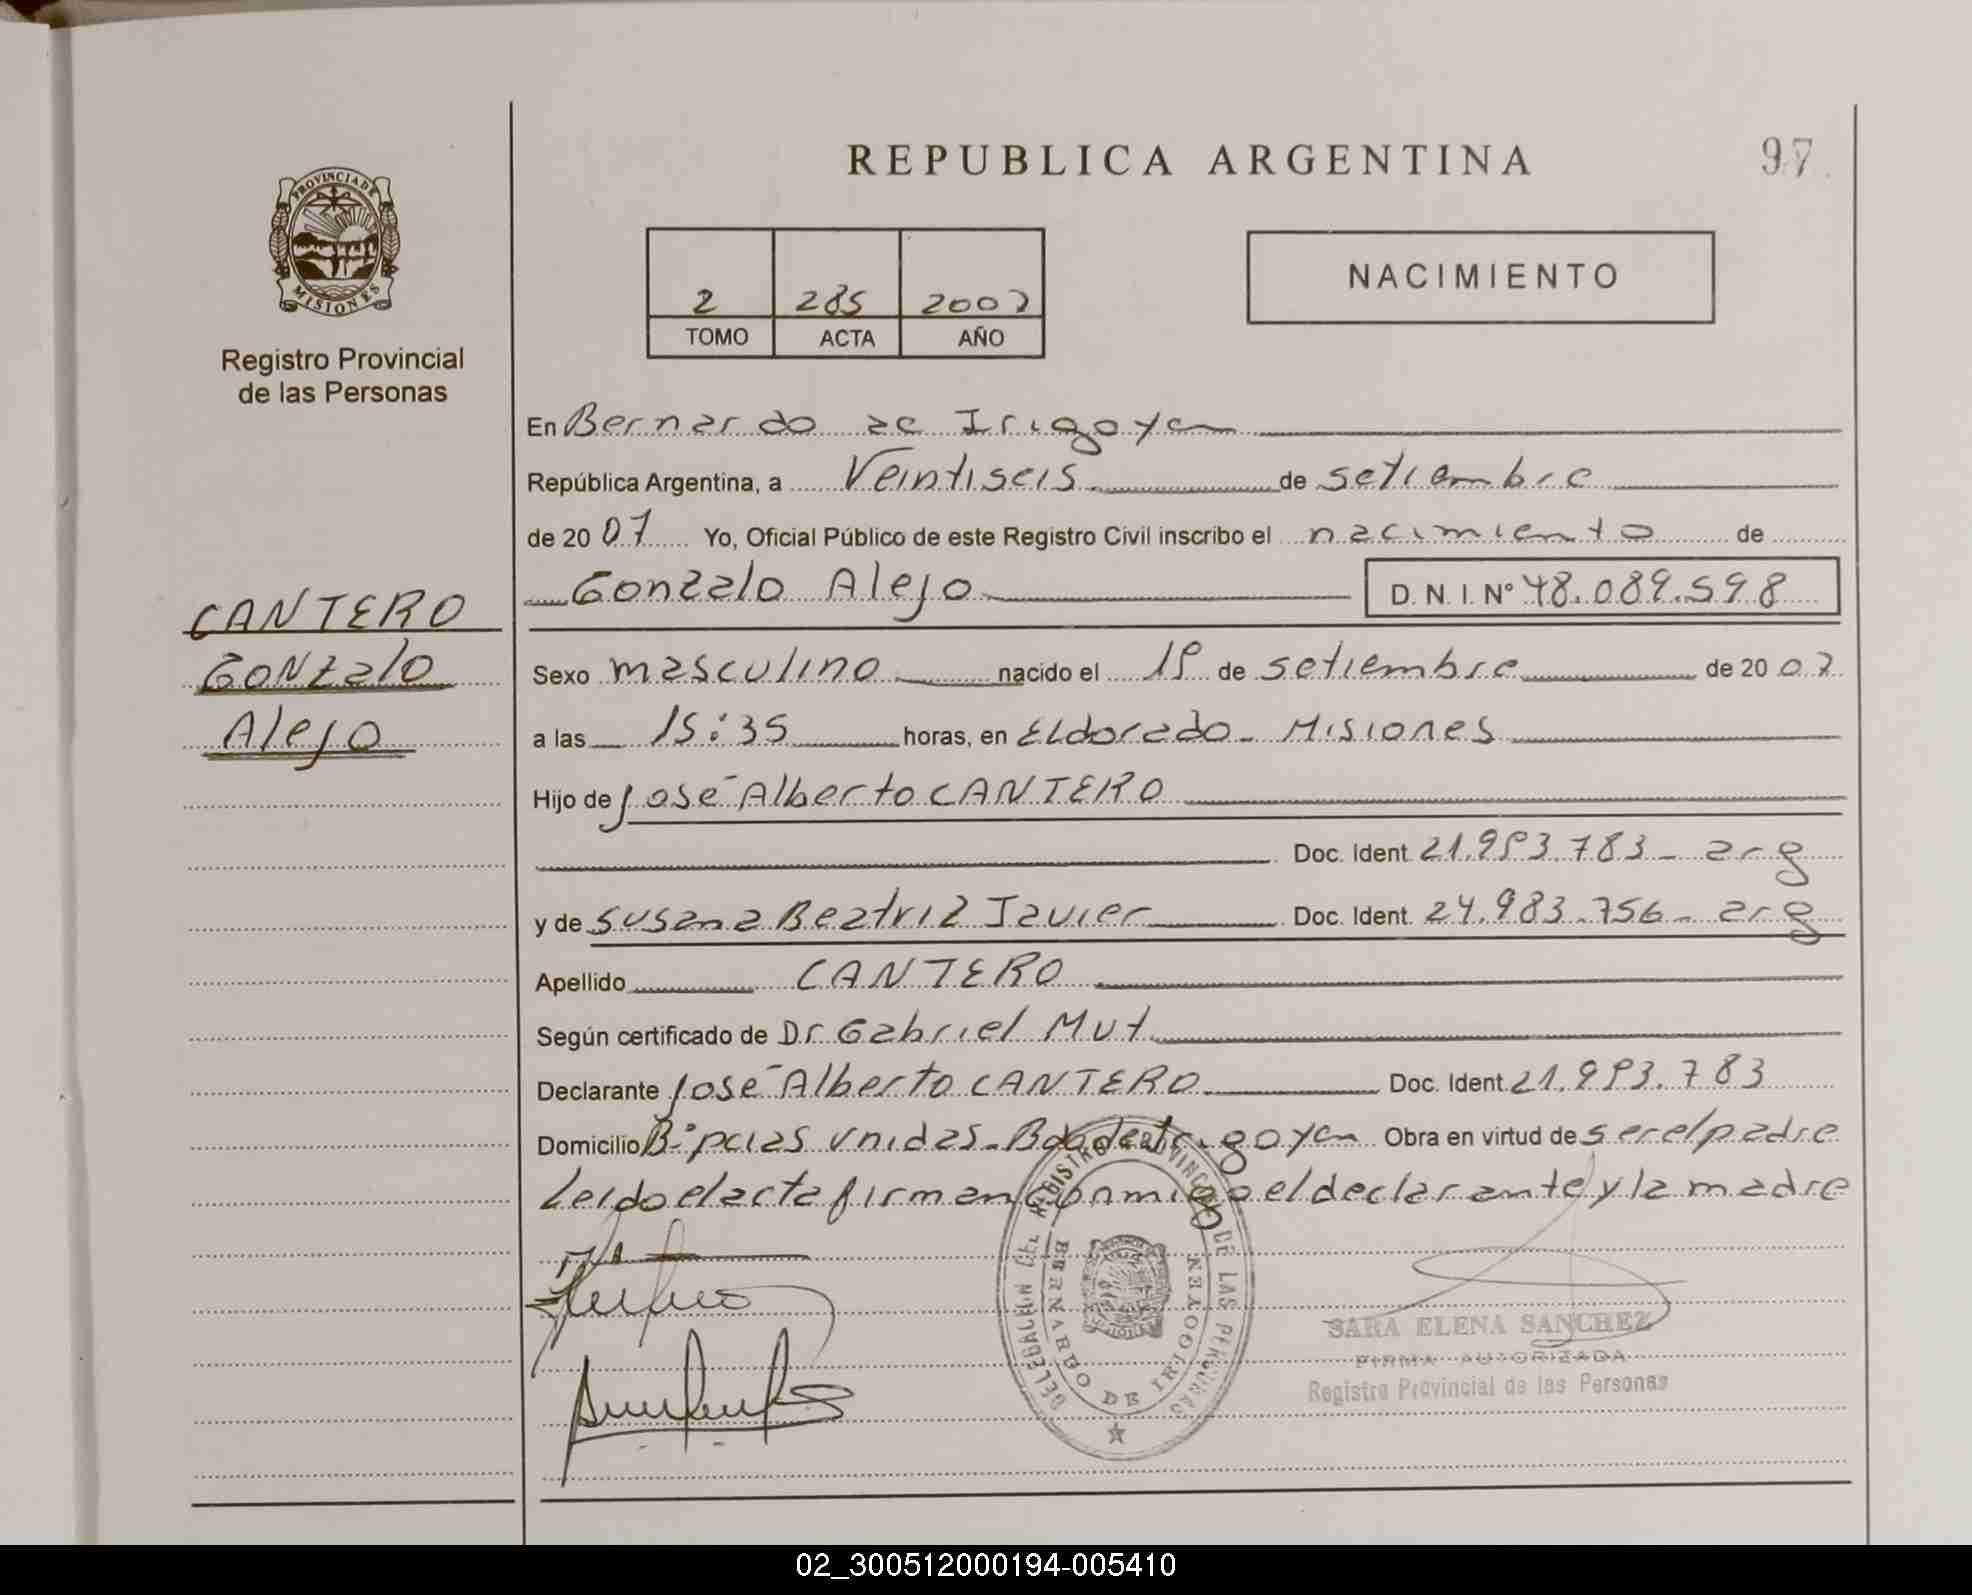 REPUBLICA ARGENTINA
97
PROVINCIA DE
MISIONES
Registro Provincial
de las Personas
2 285 2007
TOMO ACTA AÑO
NACIMIENTO
En Bernardo de Irigoyen
República Argentina, a Veintiseis de setiembre
de 2007 Yo, Oficial Público de este Registro Civil inscribo el nacimiento de
Gonzalo Alejo D. N. I. Nº 48.089.598
CANTERO
GONZalo
Alejo
Sexo masculino nacido el de setiembre de 2007
a las 15:35 horas, en ELdorado - Misiones
Hijo de José Alberto CANTERO
Doc. Ident. arg
y de Susana Beatriz Javier Doc. Ident. 24.983.756 - arg
Apellido CANTERO
Según certificado de Dr Gabriel Mut
Declarante José Alberto CANTERO Doc. Ident.
Domicilio Bº pcias unidas - Bdo de Irigoyen Obra en virtud de ser el padre
Leido el acta firman conmigo el declarante y la madre
DELEGACION DEL REGISTRO PROVINCIAL DE LAS PERSONAS
BERNARDO DE IRIGOYEN
SARA ELENA SANCHEZ
FIRMA AUTORIZADA
Registro Provincial de las Personas
02_300512000194-005410